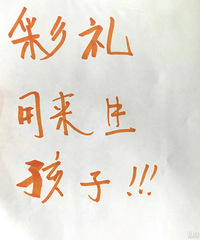 彩礼
用来生
孩子!!!